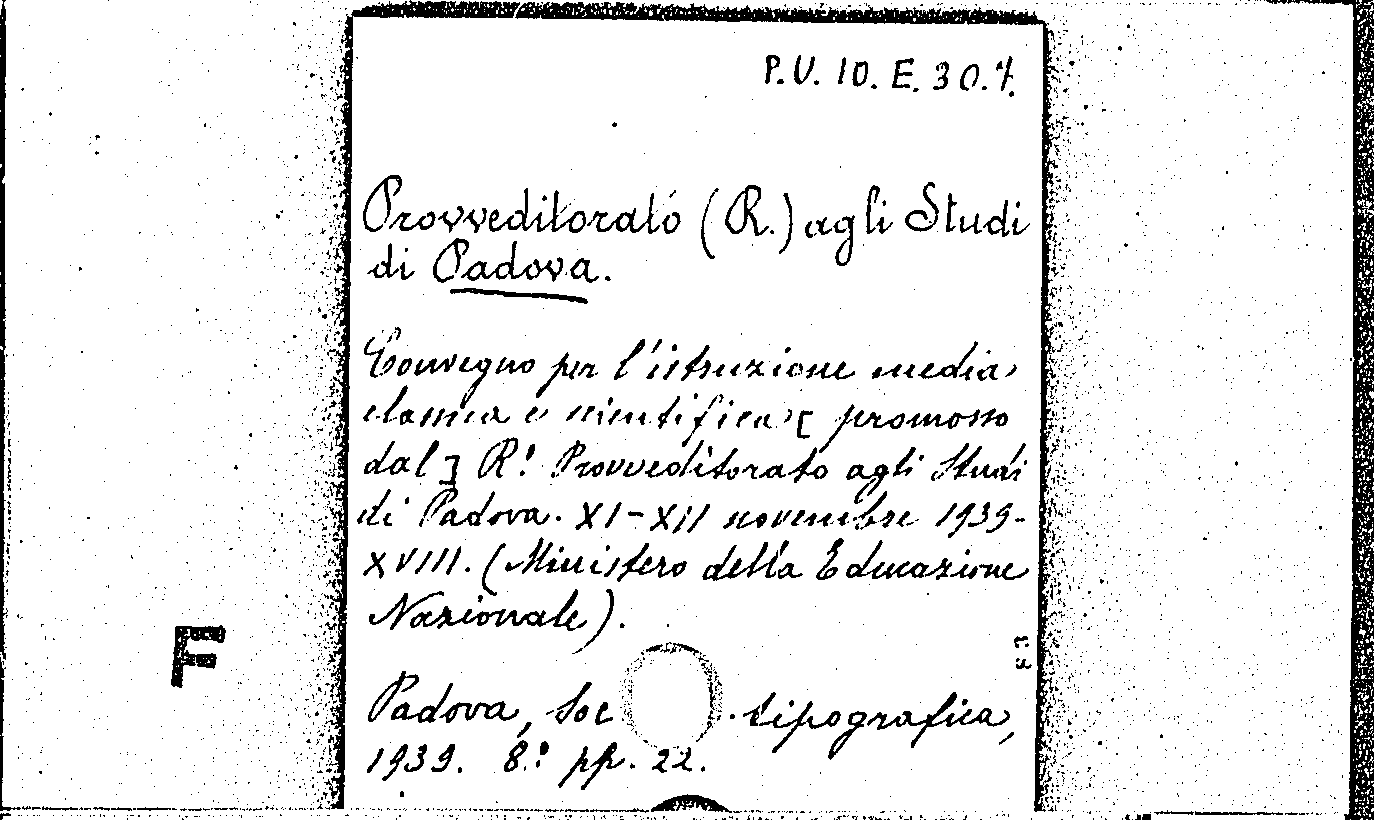 P.V. 10. E. 30.7.
Provveditorato (R.) agli Studi
di Padova.
Convegno per l'istruzione media
classica e scientifica [promosso
dal] R.º Provveditorato agli Studi
di Padova. XI-XII novembre 1939-
XVIII. (Ministero della Educazione
Nazionale).
F
Padova, Soc . tipografica,
1939. 8.º pp. 22.